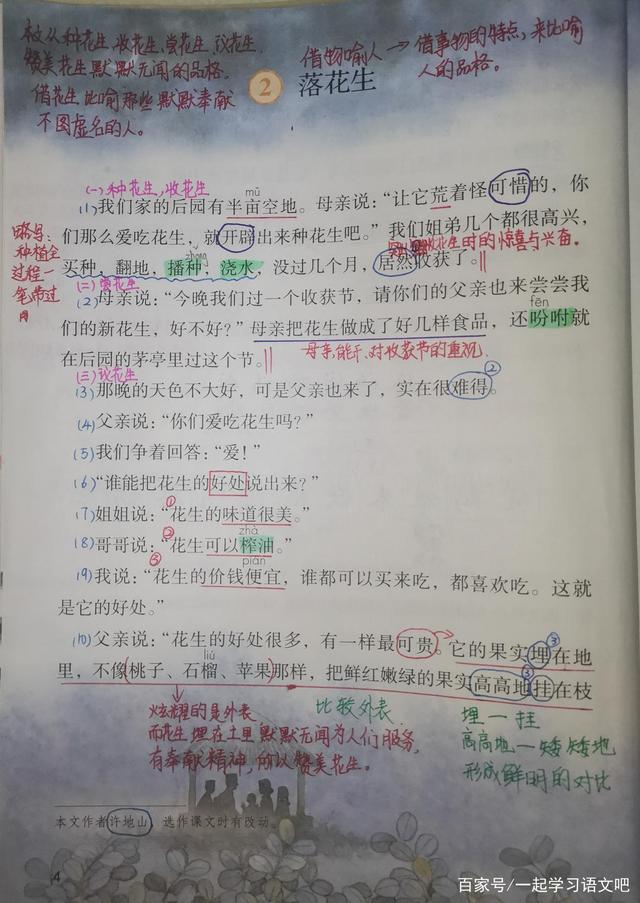 本文从种花生、收花生、尝花生、议花生,
赞美花生默默无闻的品格。
借花生比喻那些默默奉献
不图虚名的人。
借物喻人→借事物的特点,来比喻
人的品格。
2
落花生
(一)种花生,收花生
mǔ
(1)我们家的后园有半亩空地。母亲说:“让它荒着怪可惜的,你
们那么爱吃花生,就开辟出来种花生吧。”我们姐弟几个都很高兴,
收花生时的惊喜与兴奋。
zhǒng
买种,翻地,播种,浇水,没过几个月,居然收获了。
略写:
种植全
过程一
笔带过
(二)尝花生
(2)母亲说:“今晚我们过一个收获节,请你们的父亲也来尝尝我
fēn
们的新花生,好不好?”母亲把花生做成了好几样食品,还吩咐就
在后园的茅亭里过这个节。
母亲能干、对收获节的重视
(三)议花生
②
(3)那晚的天色不大好,可是父亲也来了,实在很难得。
(4)父亲说:“你们爱吃花生吗?”
(5)我们争着回答:“爱!”
(6)“谁能把花生的好处说出来?”
①
(7)姐姐说:“花生的味道很美。”
② zhà
(8)哥哥说:“花生可以榨油。”
③ pián
(9)我说:“花生的价钱便宜,谁都可以买来吃,都喜欢吃。这就
是它的好处。”
(10)父亲说:“花生的好处很多,有一样最可贵。它的果实埋在地
③
liú
里,不像桃子、石榴、苹果那样,把鲜红嫩绿的果实高高地挂在枝
③
炫耀的是外表
而花生埋在土里默默无闻为人们服务,
有奉献精神,所以赞美花生。
比较外表
埋—挂
高高地—矮矮地
形成鲜明的对比
本文作者许地山,选作课文时有改动。
4
百家号/一起学习语文吧